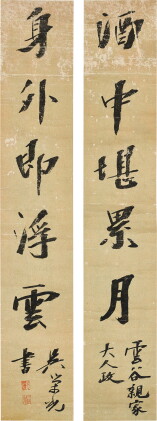 酒中堪累月
雲谷親家
大人政
身外即浮雲
吳榮光
書